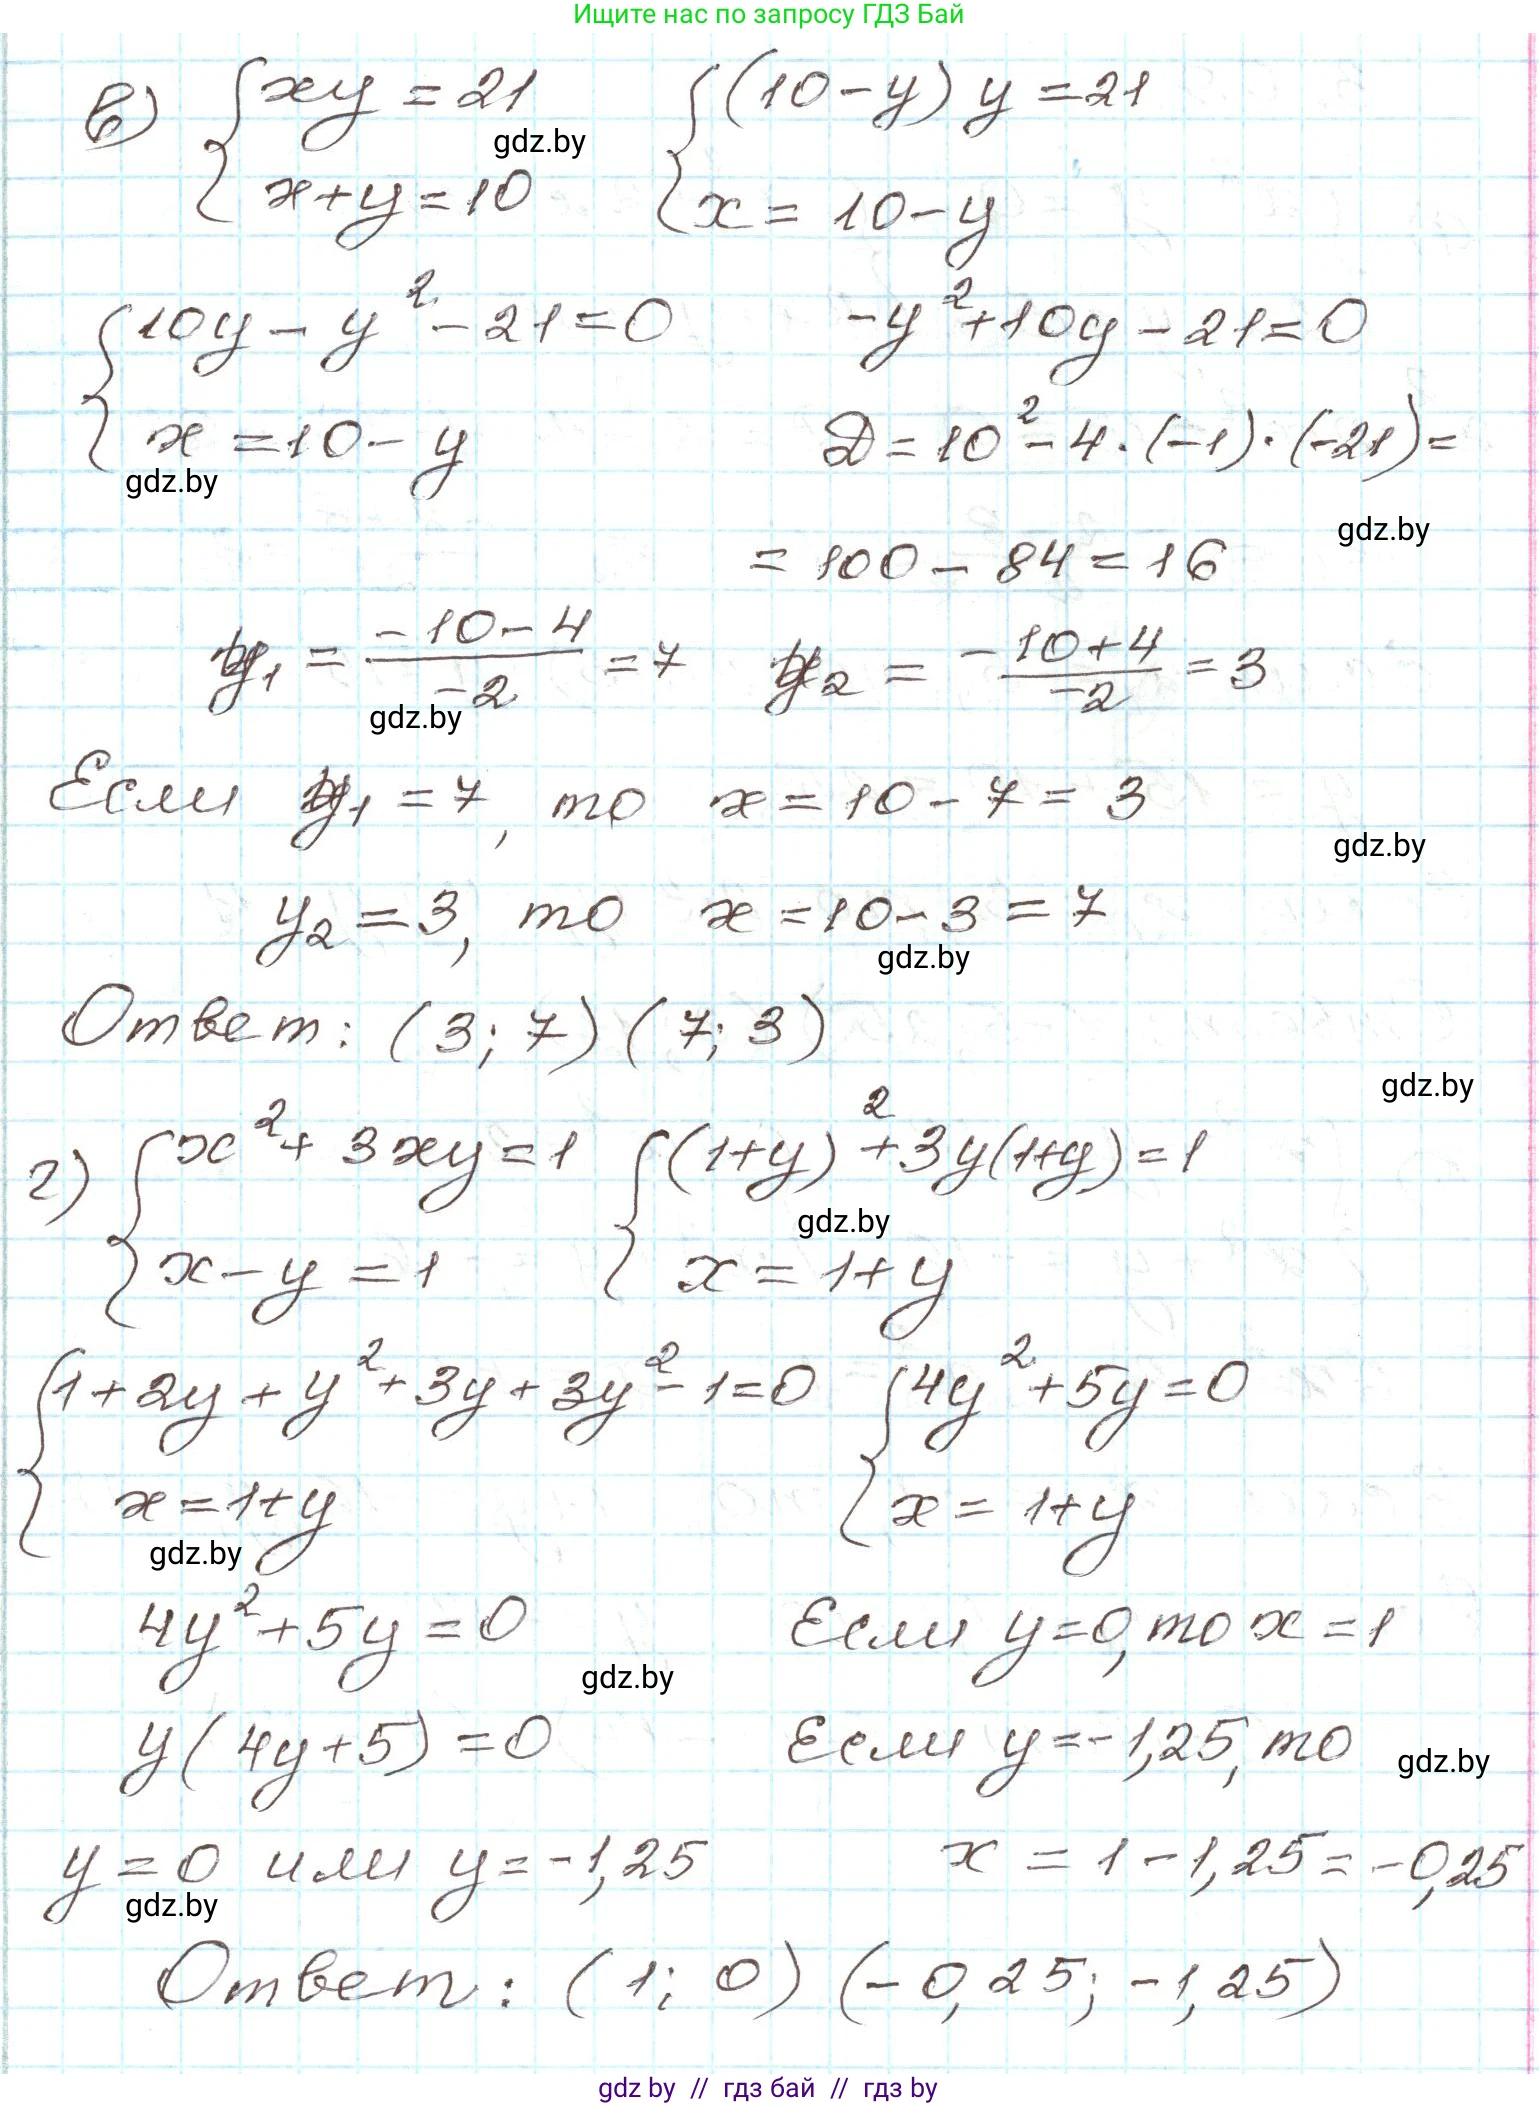 Ищите нас по запросу ГДЗ Бай
в) { xy = 21 { (10 - y) y = 21
gdz.by
x + y = 10 x = 10 - y
{ 10y - y² - 21 = 0 -y² + 10y - 21 = 0
x = 10 - y D = 10² - 4 · (-1) · (-21) =
gdz.by
gdz.by
= 100 - 84 = 16
y₁ = (-10 - 4)/(-2) = 7 y₂ = (-10 + 4)/(-2) = 3
gdz.by
Если y₁ = 7, то x = 10 - 7 = 3
gdz.by
y₂ = 3, то x = 10 - 3 = 7
gdz.by
Ответ: (3; 7) (7; 3)
gdz.by
г) { x² + 3xy = 1 { (1+y)² + 3y(1+y) = 1
gdz.by
x - y = 1 x = 1 + y
{ 1 + 2y + y² + 3y + 3y² - 1 = 0 { 4y² + 5y = 0
x = 1 + y x = 1 + y
gdz.by
4y² + 5y = 0 Если y = 0, то x = 1
gdz.by
y(4y + 5) = 0 Если y = -1,25, то
gdz.by
y = 0 или y = -1,25 x = 1 - 1,25 = -0,25
gdz.by
Ответ: (1; 0) (-0,25; -1,25)
gdz by // гдз бай // гдз by